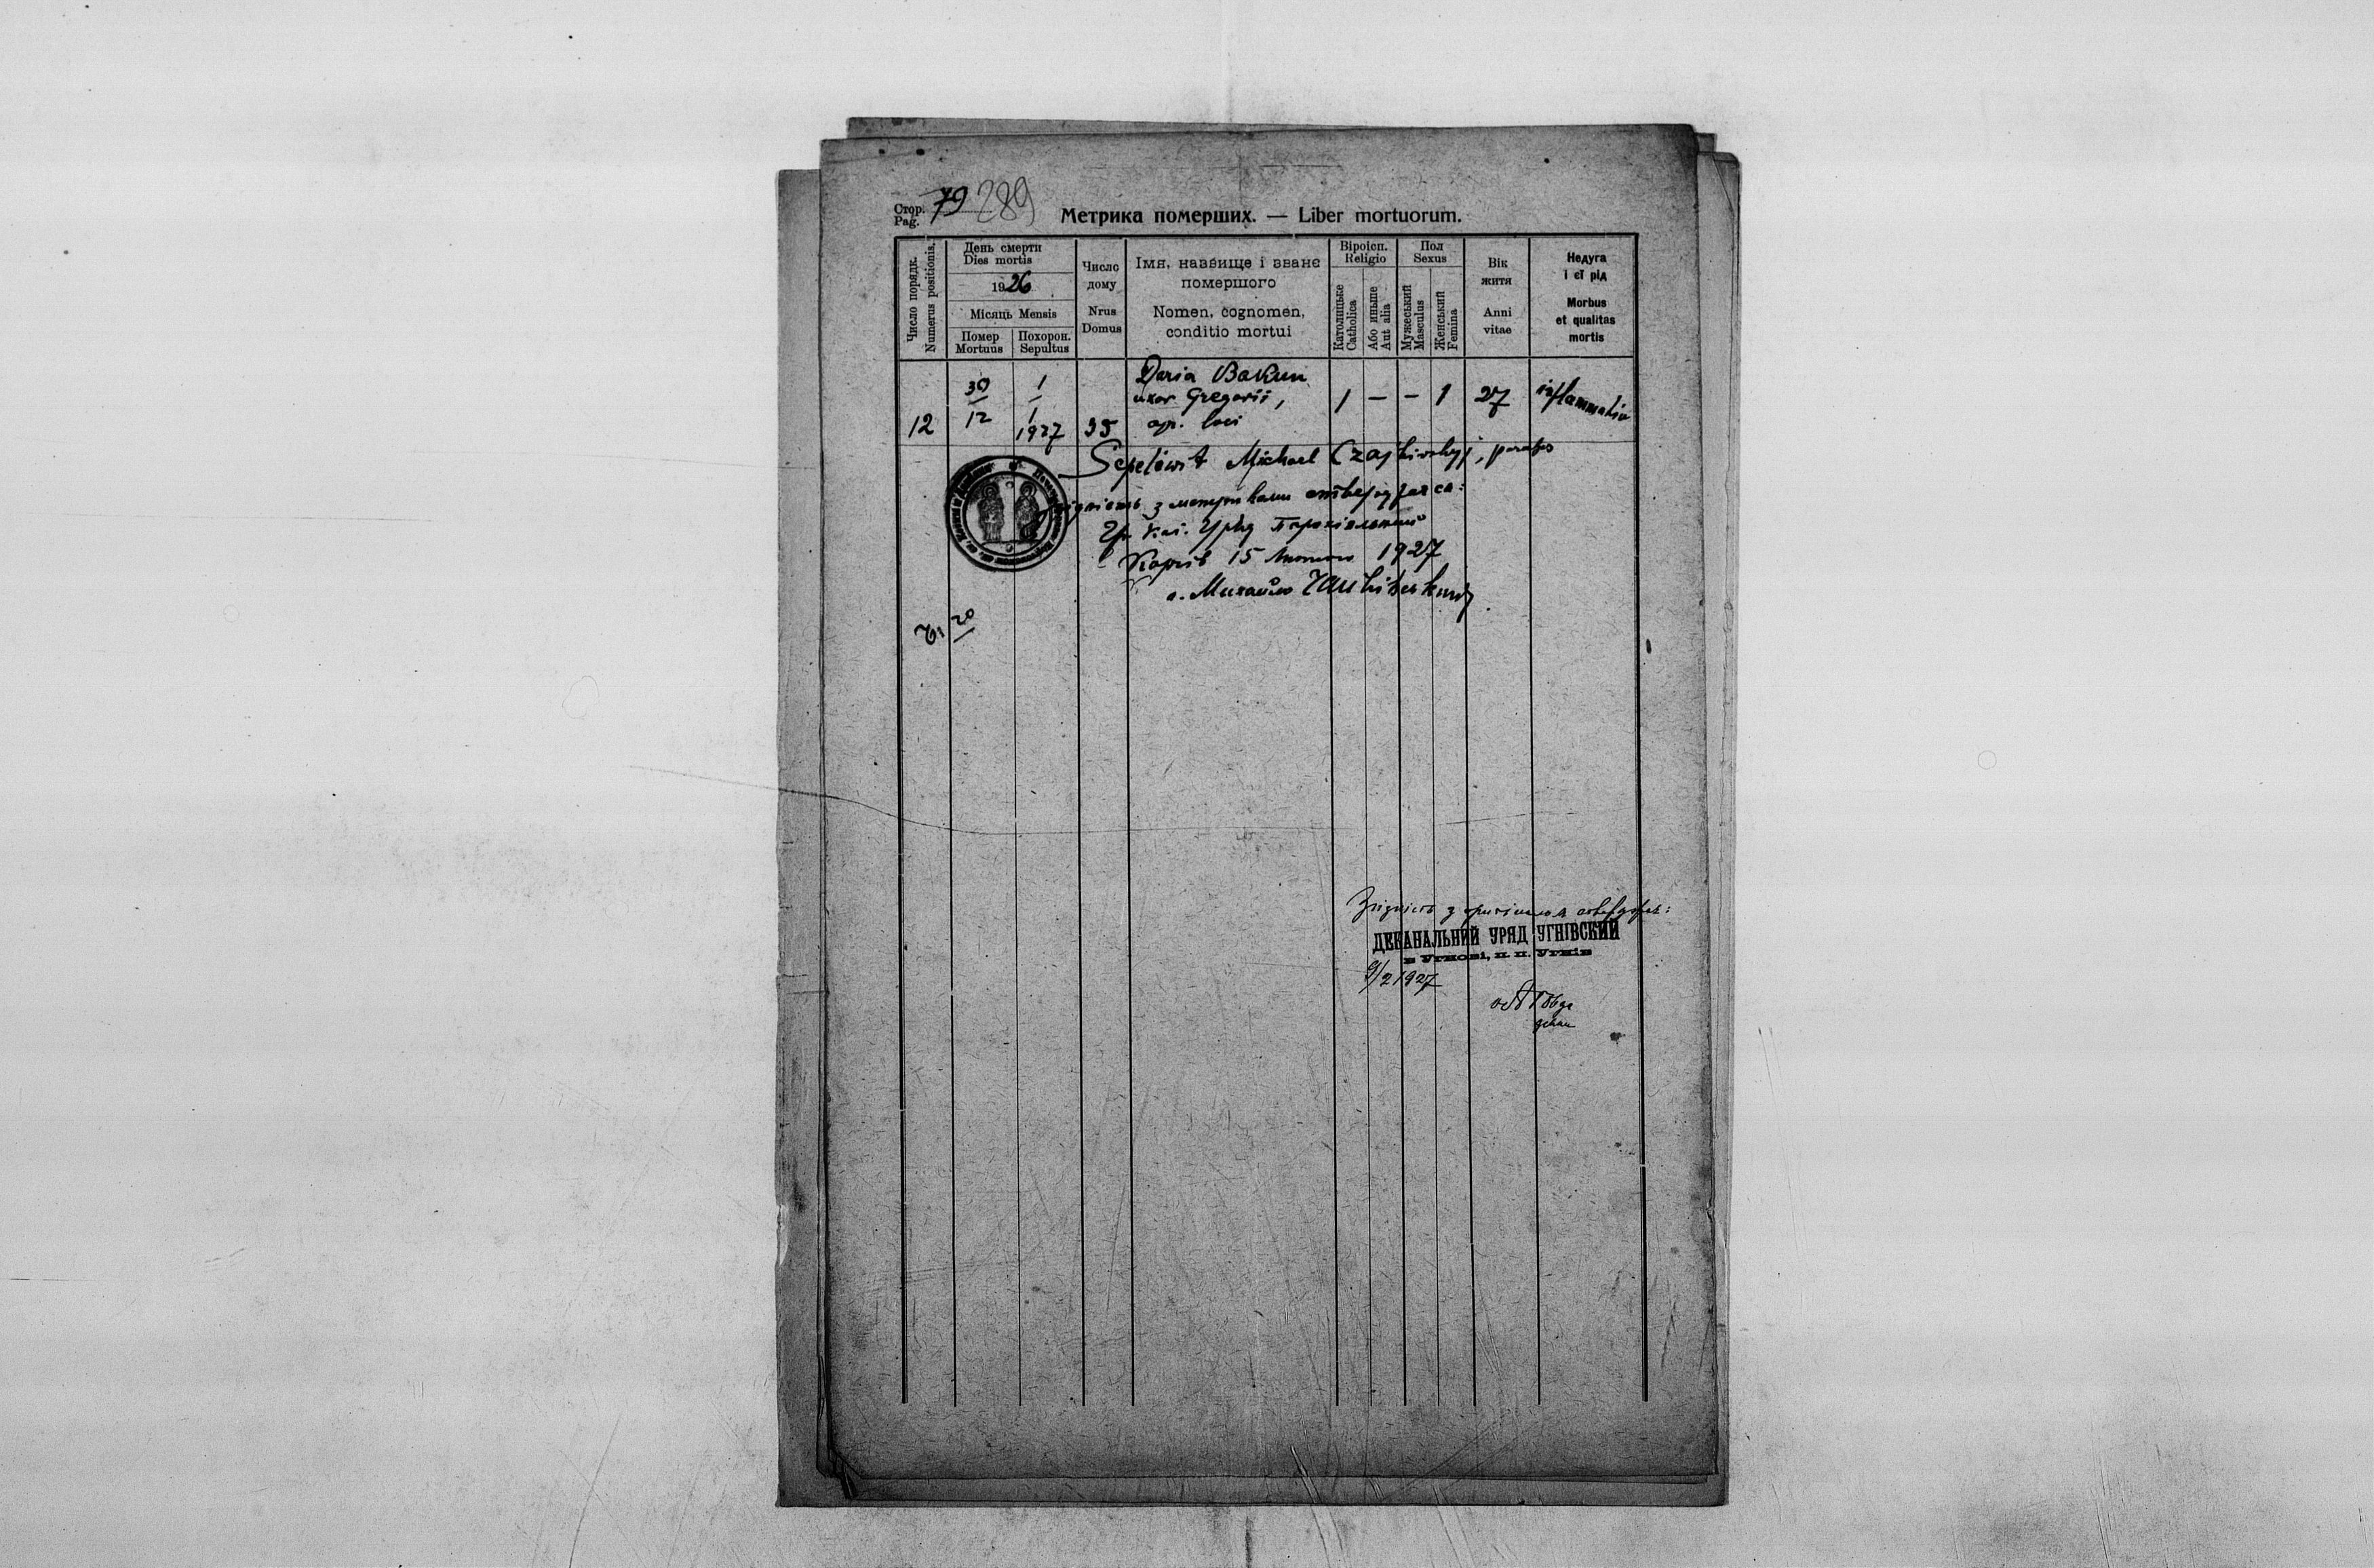 Стор. 79 289
Pag.
Метрика померших. — Liber mortuorum.
Число порядк.
Numerus positionis.
День смерти
Dies mortis
1926
Місяць Mensis
Помер
Mortuus
Похорон.
Sepultus
Число
дому
Nrus
Domus
Імя, назвище і званє
помершого
Nomen, cognomen,
conditio mortui
Віроісп.
Religio
Католицьке
Catholica
Або иньше
Aut alia
Пол
Sexus
Мужеський
Masculus
Женський
Femina
Вік
житя
Anni
vitae
Недуга
і єї рід
Morbus
et qualitas
mortis
12
30
12
1
1
1927
35
Daria Bakun
uxor Gregorii,
agr. loci
1 — — 1
27
inflammatio
Sepelivit Michael Czajkivskyj, parochus
Згідність з метриками стверджаєся:
Гр. кат. Уряд Парохіяльний
Карів 15 1927
о. Михайло Чайківський
20
Згідність з оригіналом стверджає:
ДЕКАНАЛЬНИЙ УРЯД УГНІВСКИЙ
в Угнові, п. п. Угнів
9/2 1927
декан